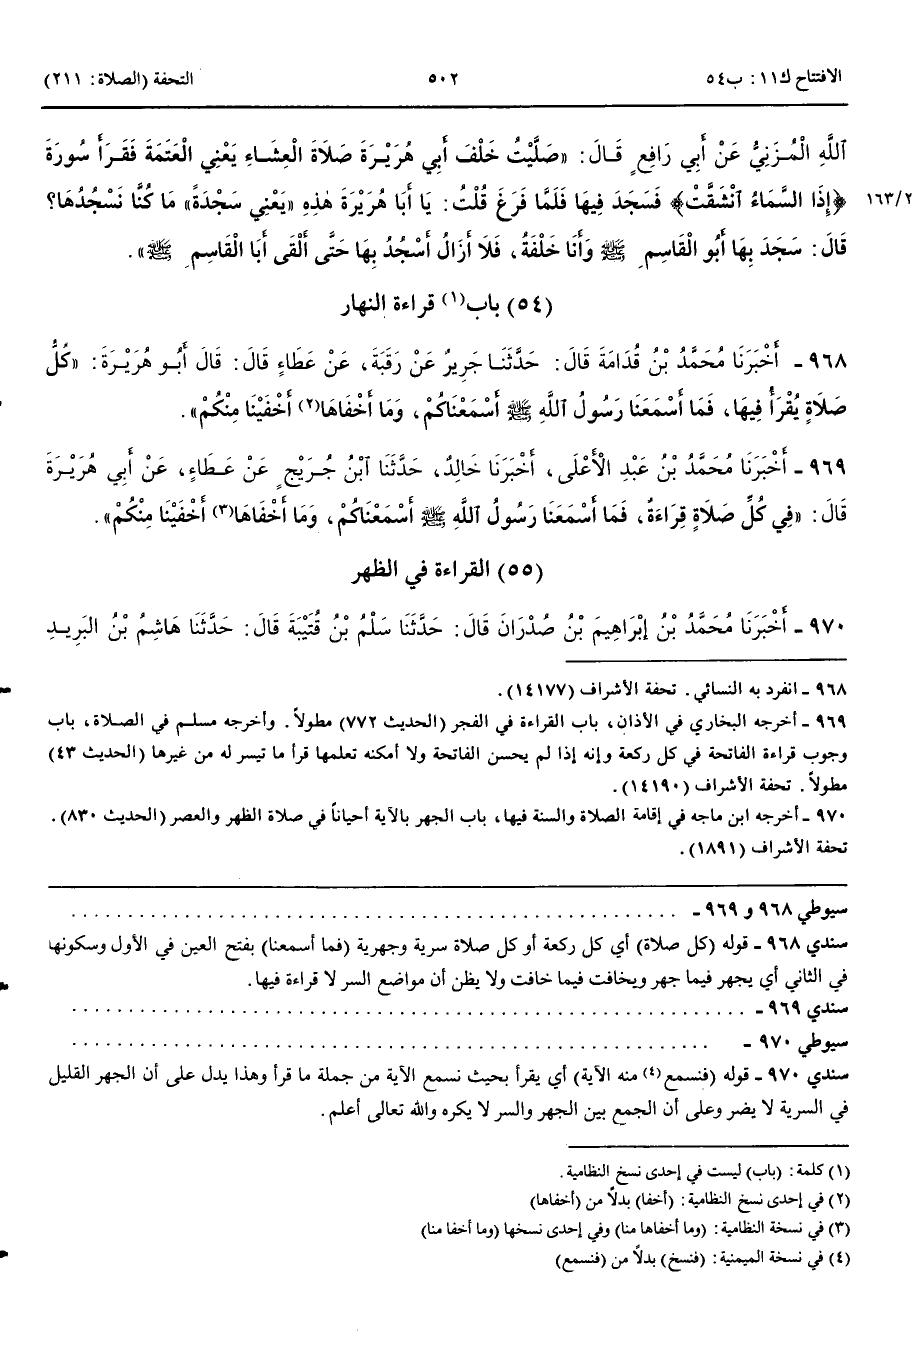 الافتتاح ك١١: ب٥٤ ٥٠٢ التحفة (الصلاة: ٢١١)
ٱللَّهِ الْمُزَنِيُّ عَنْ أَبِي رَافِعٍ قَالَ: «صَلَّيْتُ خَلْفَ أَبِي هُرَيْرَةَ صَلَاةَ الْعِشَاءِ يَعْنِي الْعَتَمَةَ فَقَرَأَ سُورَةَ
١٦٣/٢ ﴿إِذَا السَّمَاءُ ٱنْشَقَّتْ﴾ فَسَجَدَ فِيهَا فَلَمَّا فَرَغَ قُلْتُ: يَا أَبَا هُرَيْرَةَ هٰذِهِ «يَعْنِي سَجْدَةً» مَا كُنَّا نَسْجُدُهَا؟
قَالَ: سَجَدَ بِهَا أَبُو الْقَاسِمِ ﷺ وَأَنَا خَلْفَهُ، فَلَا أَزَالُ أَسْجُدُ بِهَا حَتَّى أَلْقَى أَبَا الْقَاسِمِ ﷺ».
(٥٤) باب(١) قراءة النهار
٩٦٨ - أَخْبَرَنَا مُحَمَّدُ بْنُ قُدَامَةَ قَالَ: حَدَّثَنَا جَرِيرٌ عَنْ رَقَبَةَ، عَنْ عَطَاءٍ قَالَ: قَالَ أَبُو هُرَيْرَةَ: «كُلُّ
صَلَاةٍ يُقْرَأُ فِيهَا، فَمَا أَسْمَعَنَا رَسُولُ ٱللَّهِ ﷺ أَسْمَعْنَاكُمْ، وَمَا أَخْفَاهَا(٢) أَخْفَيْنَا مِنْكُمْ».
٩٦٩ - أَخْبَرَنَا مُحَمَّدُ بْنُ عَبْدِ الْأَعْلَى، أَخْبَرَنَا خَالِدٌ، حَدَّثَنَا ٱبْنُ جُرَيْجٍ عَنْ عَطَاءٍ، عَنْ أَبِي هُرَيْرَةَ
قَالَ: «فِي كُلِّ صَلَاةٍ قِرَاءَةٌ، فَمَا أَسْمَعَنَا رَسُولُ ٱللَّهِ ﷺ أَسْمَعْنَاكُمْ، وَمَا أَخْفَاهَا(٣) أَخْفَيْنَا مِنْكُمْ».
(٥٥) القراءة في الظهر
٩٧٠ - أَخْبَرَنَا مُحَمَّدُ بْنُ إِبْرَاهِيمَ بْنُ صُدْرَانَ قَالَ: حَدَّثَنَا سَلْمُ بْنُ قُتَيْبَةَ قَالَ: حَدَّثَنَا هَاشِمُ بْنُ الْبَرِيدِ
٩٦٨ - انفرد به النسائي. تحفة الأشراف (١٤١٧٧).
٩٦٩ - أخرجه البخاري في الأذان، باب القراءة في الفجر (الحديث ٧٧٢) مطولاً. وأخرجه مسلم في الصلاة، باب
وجوب قراءة الفاتحة في كل ركعة وإنه إذا لم يحسن الفاتحة ولا أمكنه تعلمها قرأ ما تيسر له من غيرها (الحديث ٤٣)
مطولاً. تحفة الأشراف (١٤١٩٠).
٩٧٠ - أخرجه ابن ماجه في إقامة الصلاة والسنة فيها، باب الجهر بالآية أحياناً في صلاة الظهر والعصر (الحديث ٨٣٠).
تحفة الأشراف (١٨٩١).
سيوطي ٩٦٨ و ٩٦٩ - . . . . . . . . . . . . . . . . . . . .
سندي ٩٦٨ - قوله (كل صلاة) أي كل ركعة أو كل صلاة سرية وجهرية (فما أسمعنا) بفتح العين في الأول وسكونها
في الثاني أي يجهر فيما جهر ويخافت فيما خافت ولا يظن أن مواضع السر لا قراءة فيها.
سندي ٩٦٩ - . . . . . . . . . . . . . . . . . . . .
سيوطي ٩٧٠ - . . . . . . . . . . . . . . . . . . . .
سندي ٩٧٠ - قوله (فنسمع(٤) منه الآية) أي يقرأ بحيث نسمع الآية من جملة ما قرأ وهذا يدل على أن الجهر القليل
في السرية لا يضر وعلى أن الجمع بين الجهر والسر لا يكره والله تعالى أعلم.
(١) كلمة: (باب) ليست في إحدى نسخ النظامية.
(٢) في إحدى نسخ النظامية: (أخفا) بدلاً من (أخفاها)
(٣) في نسخة النظامية: (وما أخفاها منا) وفي إحدى نسخها (وما أخفا منا)
(٤) في نسخة الميمنية: (فنسخ) بدلاً من (فنسمع)